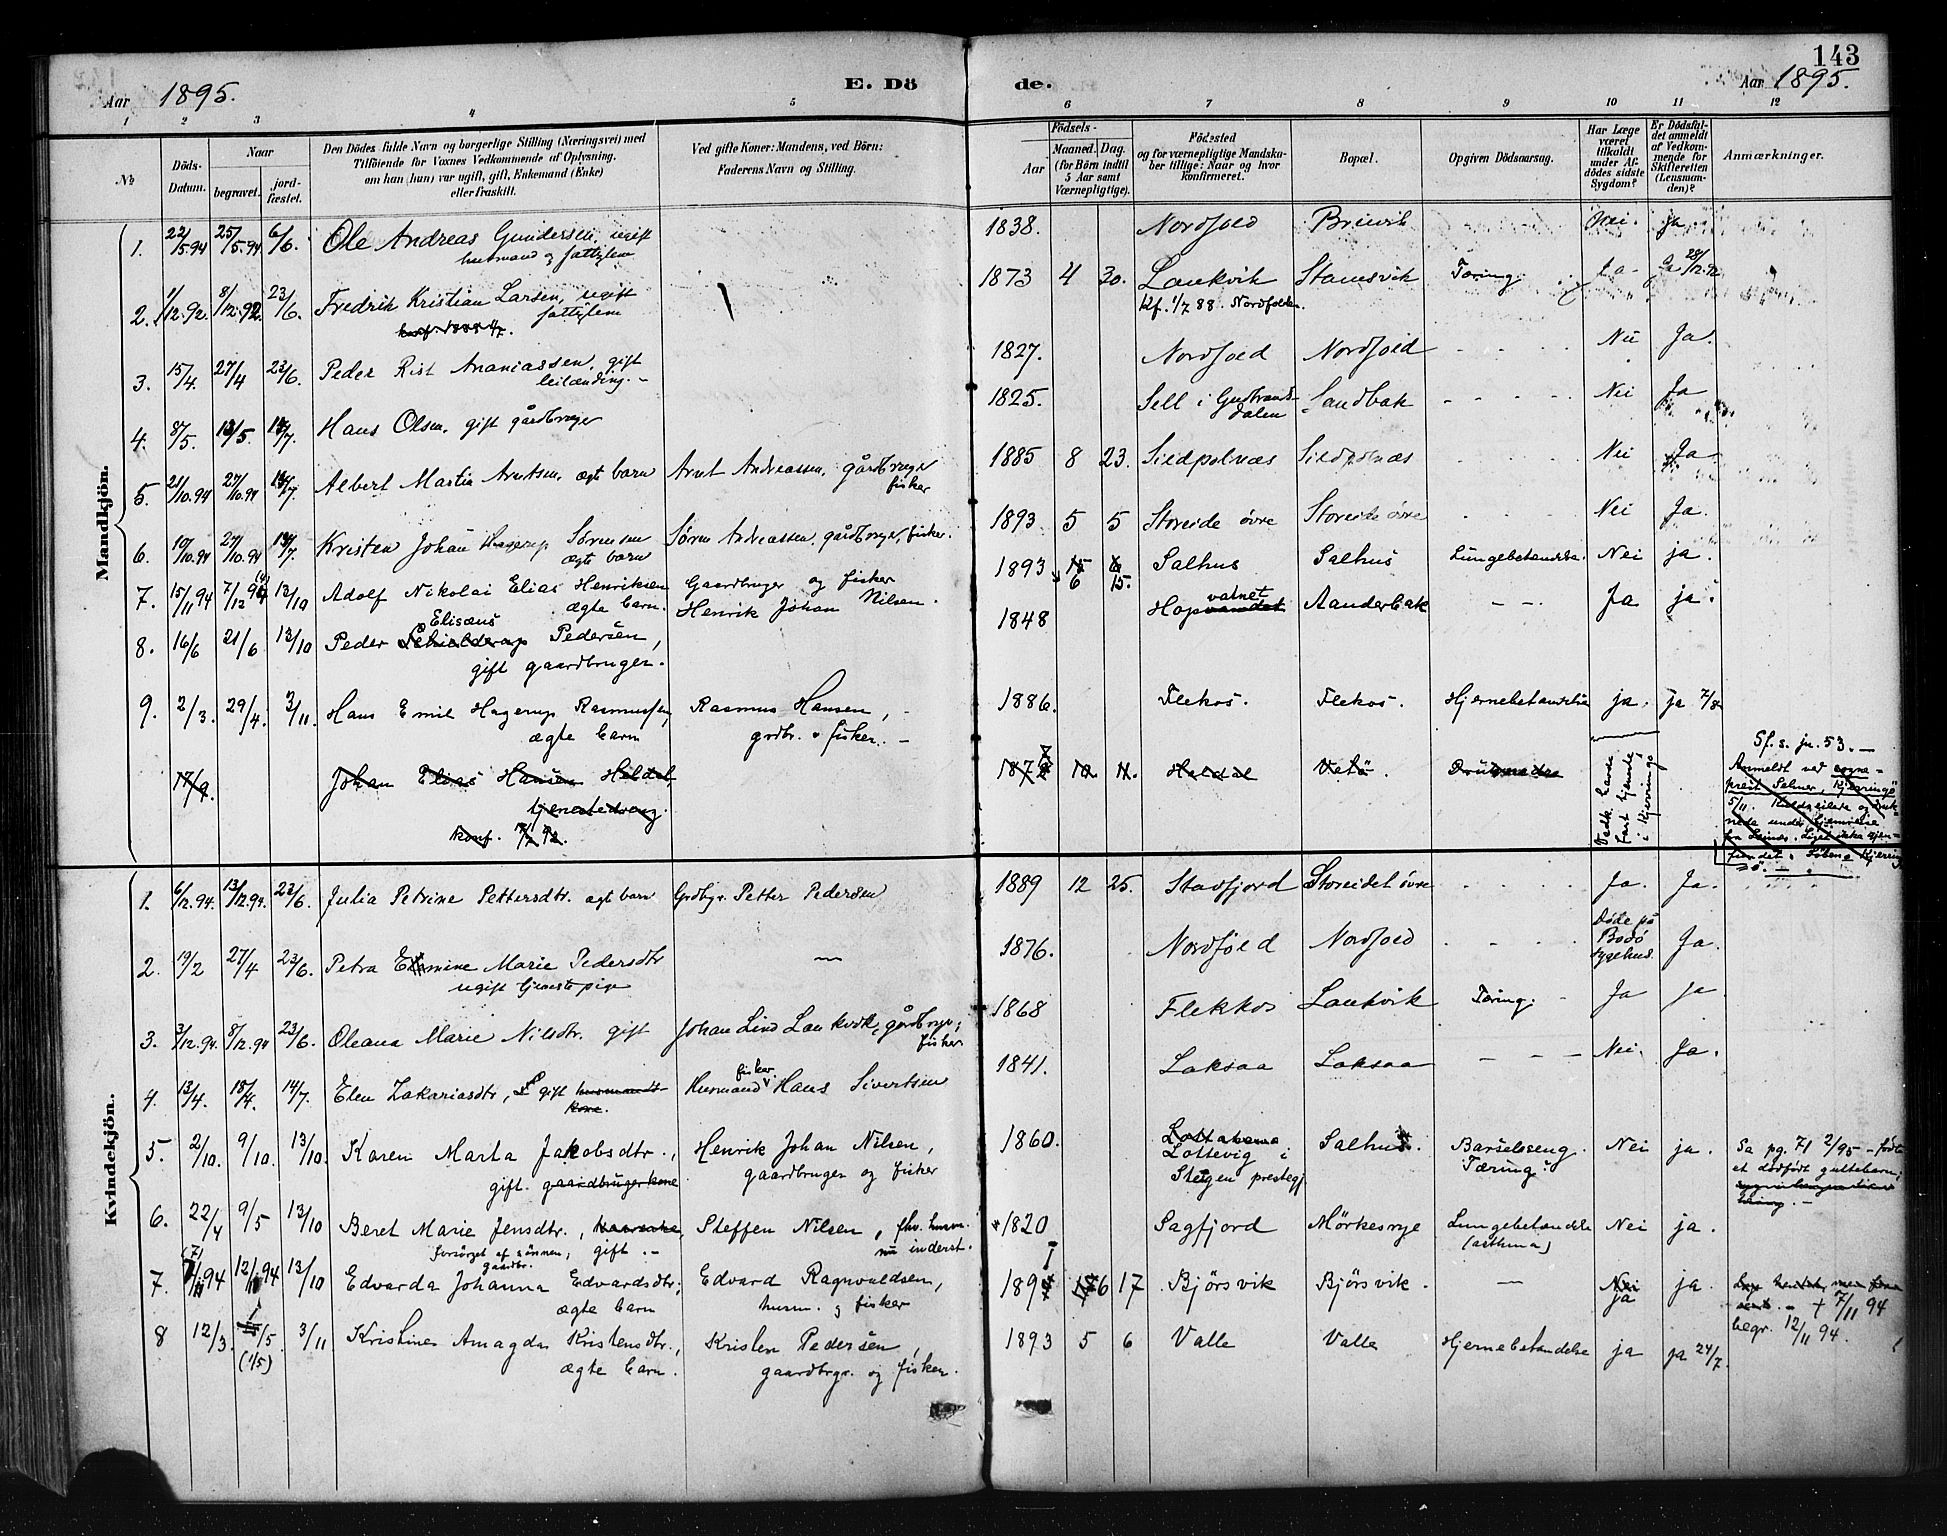 143
Aar 1895. E. Dö de. Aar 1895.
1 2 3 4 5 6 7 8 9 10 11 12
№
Döds-Datum.
Naar
begravet.
jord-fæstet.
Den Dödes fulde Navn og borgerlige Stilling (Næringsvei) med
Tilföiende for Voxnes Vedkommende af Oplysning,
om han (hun) var ugift, gift, Enkemand (Enke)
eller fraskilt.
Ved gifte Koner: Mandens, ved Börn:
Faderens Navn og Stilling.
Födsels-
Aar
Maaned. Dag.
(for Börn indtil
5 Aar samt
Værnepligtige).
Födested
og for værnepligtige Mandska-
ber tillige: Naar og hvor
konfirmeret.
Bopæl.
Opgiven Dödsaarsag.
Har Læge
været
tilkaldt
under Af-
dödes sidste
Sygdom?
Er Dödsfal-
det anmeldt
af Vedkom-
mende for
Skifteretten
(Lensman-
den)?
Anmærkninger.
Mandkjön.
1. 22/5.94 25/5.94 6/6. Ole Andreas Gundersen, ugift 1838. Nordfold Brievik Nei. Ja.
husmand og fattiglem
2. 1/12.92. 8/12.92 23/6. Fredrik Kristian Larsen, ugift 1873 4 30. Lankvik Stamsvik Tæring. Ja Ja 28/12.92
fattiglem Kf. 1/7 88. Nordfolden.
konf. 1888 1/7.
3. 15/4. 27/4 23/6. Peder Rist Ananiassen, gift 1827. Nordfold Nordfold Nei Ja.
leilænding.
4. 8/5. 13/5 14/7. Hans Olsen, gift gårdbruger 1825. Sell i Gudbrands-dalen Sandbak Nei Ja
5. 21/10.94 27/10.94 14/7. Albert Martin Arntsen, ægte barn Arnt Andreassen, gårdbruger fisker 1885 8 23. Sildpolnæs Sildpolnæs Nei Ja
6. 19/10.94 27/10.94 14/7. Kristen Johan Hagerup Sørensen Søren Andreassen, gårdbruger, fisker. 1893 5 5 Storeide øvre Storeide øvre Nei Ja.
ægte barn
7. 15/11 94 7/12 94 13/10 Adolf Nikolai Elias Henriksen Gaardbruger og fisker 1893 6 15. Salhus Salhus Lungebetændelse. Nei ja.
ægte barn. Henrik Johan Nilsen.
8. 16/6 21/6 13/10 Peder Schielderup Elisæus Pedersen, 1848 Hopvandet vatnet Aanderbak Ja ja.
gift gaardbruger.
9. 2/3. 29/4. 3/11. Hans Emil Hagerup Rasmussen, Rasmus Hansen, 1886. Flekos. Flekos. Hjernebetændelse ja. ja 7/8
ægte barn grdbr. & fisker.
17/9. Johan Elias Hansen Heldal, Heldal Vetö. Druknede
tjenestedreng.
konf. 17/7 92.
i Kjerringö
Sf. s. jr. 53. —
Anmeldt ved sogne-
prest Selmer, Kjerringö
5/11. Kuldseilede og druk-
nede under hjemreise
fra Leines. Liget ikke gjen-
fundet.
Kvindekjön.
1. 6/12.94. 13/12.94. 23/6. Julia Petrine Pettersdtr. ægt barn Grdbgr. Petter Pedersen 1889 12 25. Stavfjord Storeidet øvre Ja. Ja.
2. 19/2 27/4 23/6. Petra Ermine Marie Pedersdtr — 1876. Nordfold Nordfold Døde på Bodø sygehus. Ja.
ugift tjenestepige
3. 3/12.94. 8/12.94 23/6. Oleana Marie Nilsdtr. gift Johan Lind Lankvik, gårdbrugr, fisker 1868 Flekkos Lankvik Tæring. Ja ja
4. 13/4. 18/4. 14/7. Elen Zakariasdtr, gift husmands-kone. Husmand fisker Hans Sivertsen 1841. Laksaa Laksaa Nei. Ja.
5. 2/10. 9/10. 13/10. Karen Marta Jakobsdtr., Henrik Johan Nilsen, 1860. Lottevig i Salhus. Barselseng. Nei ja.
gift. gaardbrugerkone gaardbruger og fisker Steigen prestegj Tæring.
Sa pg. 71 2/95 - fødte
et dødfødt guttebarn;
6. 22/4 9/5 13/10 Beret Marie Jensdtr., gift. Steffen Nilsen, fhv. husm. nu inderst. 1820 Sagfjord Mörkesvye Lungebetændelse (asthma) Nei ja.
forsörget af sönnen, gaardbr.
7. 7/11 94 12/11 94 13/10 Edvarda Johanna Edvardsdtr; Edvard Ragnvaldsen, 1894 6 17 Björsvik Björsvik. — Nei ja ja.
ægte barn husm. og fisker
+ 7/11 94
begr. 12/11 94.
8 12/3. 15/5. (1/5) 3/11 Kristine Amagda Kristensdtr., Kristen Pedersen, 1893 5 6 Valle Valle Hjernebetændelse ja ja 24/7.
ægte barn. gaardbrgr. og fisker.